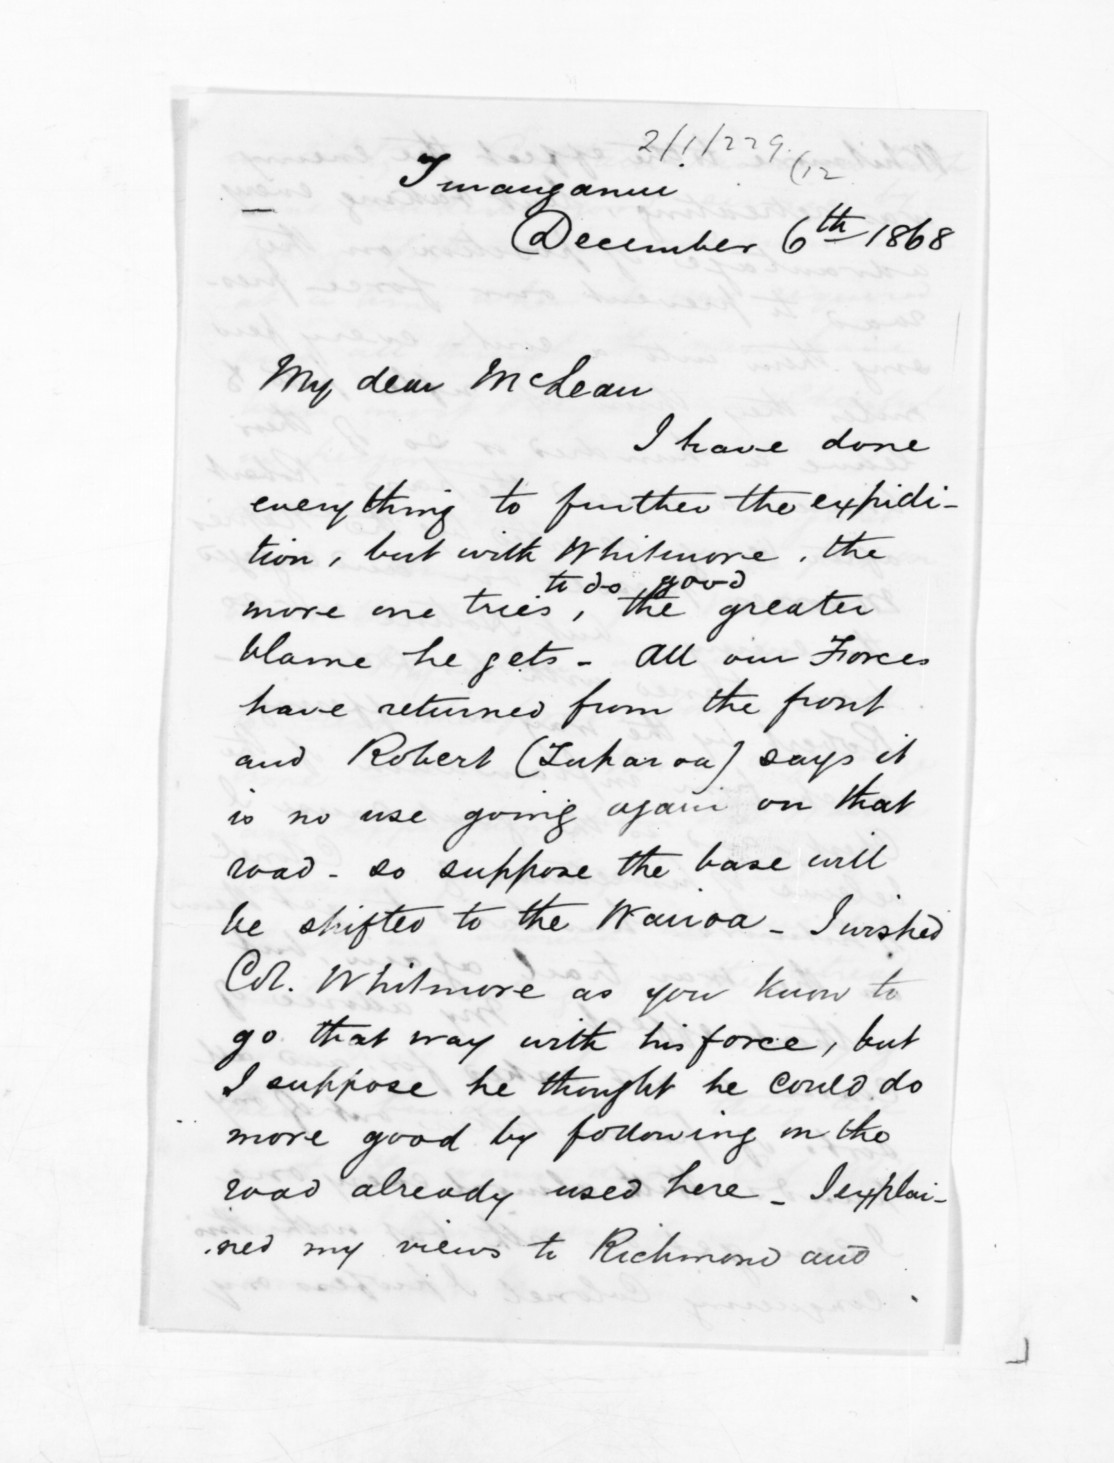 2/1/229.
(12
Turanganui
December 6th 1868
My dear McLean
I have done
everything to further the expidi-
tion, but with Whitmore, the
to do good
more one tries, the greater
blame he gets - All our Forces
have returned from the front
and Robert (Tuharoa) says it
is no use going again on that
road - so suppose the base will
be shifted to the Wairoa - I wished
Col. Whitmore as you know to
go that way with his force, but
I suppose he thought he could do
more good by following on the
road already used here - I explai-
ned my views to Richmond and